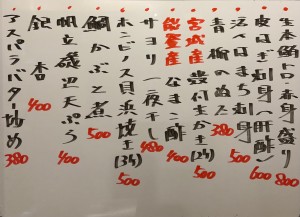 生本鮪トロ・赤身盛り 800
皮はぎ刺身(肝ポン) 600
活〆はまち刺身 500
青柳のぬた 380
宮城産 殻付生かき(2ケ) 500
能登産 生なまこ酢 400
サヨリ一夜干し 480
ホンビノス貝浜焼き(3ケ) 500
鯛かぶと煮 500
帆立磯辺天ぷら 400
銀杏 400
アスパラバター炒め 380